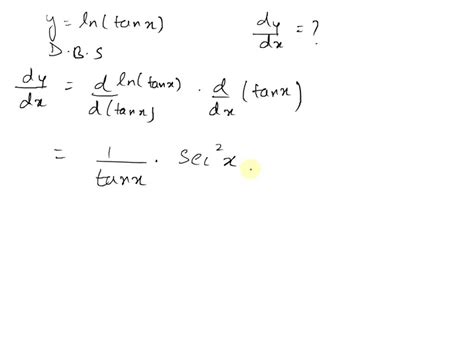 y = ln(tanx) dy/dx = ?
D.B.S
dy/dx = d ln(tanx)/d(tanx) · d/dx (tanx)
= 1/tanx · sec²x